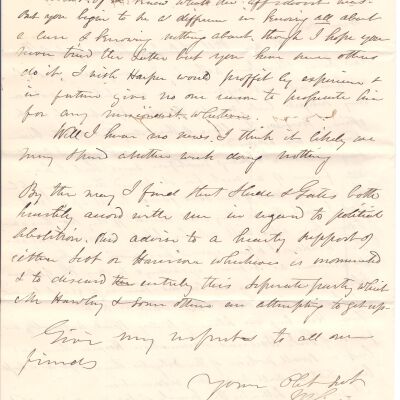 But you begin to be a difference in knowing all about
a case & knowing nothing about, though I hope you
never tried the latter but you have seen others
do it. I wish Harper would proffit by experience &
in future give no one reason to prosecute him
for any whatever
Well I have no news. I think it likely we
may spend another week doing nothing
By the way I find that & Gates both
heartily accord with me in regard to political
abolition. And advise to a hearty support of
either Scot or Harrison whichever is nominated
& to discard entirely this seperate party which
Mr Hawley & some others are attempting to get up.
Give my respects to all our
friends
Yours Obt